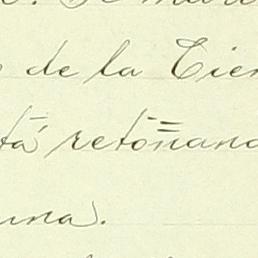 de la Cien
tá retoñand
una.